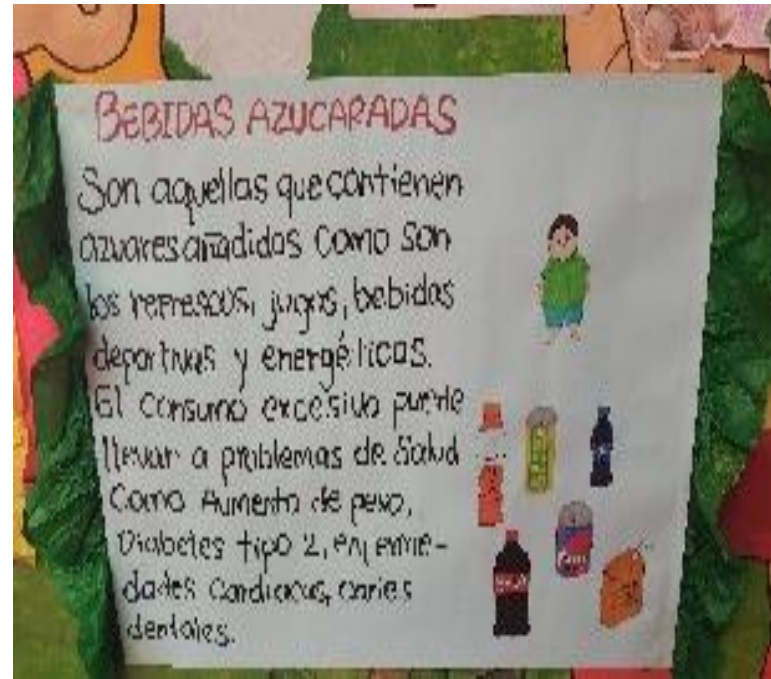 BEBIDAS AZUCARADAS
Son aquellas que contienen
azucares añadidos como son
los refrescos, jugos, bebidas
deportivas y energéticas.
El consumo excesivo puede
llevar a problemas de Salud
Como Aumento de peso,
Diabetes tipo 2, enferme-
dades Cardiacas, caries
dentales.